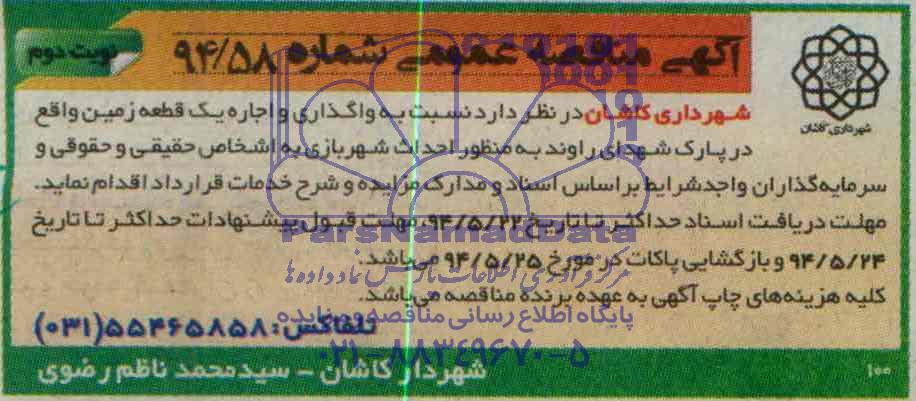 آگهی مناقصه عمومی شماره ۹۴/۵۸
نوبت دوم
شهرداری کاشان
شهرداری کاشان در نظر دارد نسبت به واگذاری و اجاره یک قطعه زمین واقع
در پارک شهدای راوند به منظور احداث شهربازی به اشخاص حقیقی و حقوقی و
سرمایه‌گذاران واجد شرایط بر اساس اسناد و مدارک مزایده و شرح خدمات قرارداد اقدام نماید.
مهلت دریافت اسناد حداکثر تا تاریخ ۹۴/۵/۲۲، مهلت قبول پیشنهادات حداکثر تا تاریخ
۹۴/۵/۲۴ و بازگشایی پاکات در مورخ ۹۴/۵/۲۵ می‌باشد.
کلیه هزینه‌های چاپ آگهی به عهده برنده مناقصه می‌باشد.
تلفاکس: ۵۵۴۶۵۸۵۸(۰۳۱)
شهردار کاشان - سیدمحمد ناظم رضوی
۱۰۰
ParsNamadData
مرکز فرآوری اطلاعات پارس نماد داده‌ها
پایگاه اطلاع رسانی مناقصه و مزایده
۰۲۱-۸۸۳۴۹۶۷۰-۵